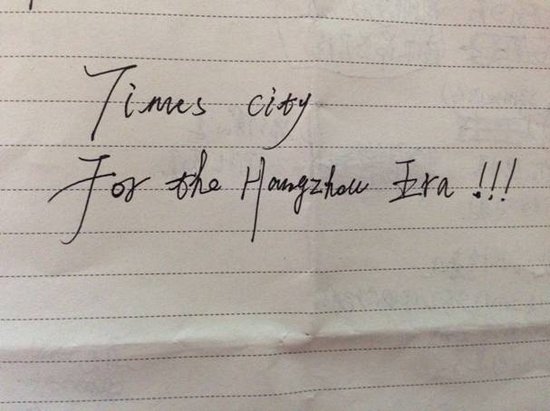 Times city
For the Hangzhou Era !!!